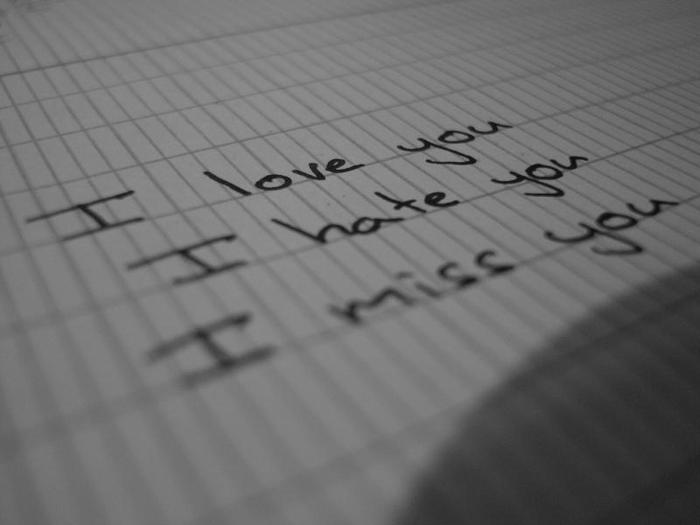 I love you
I hate you
I miss you